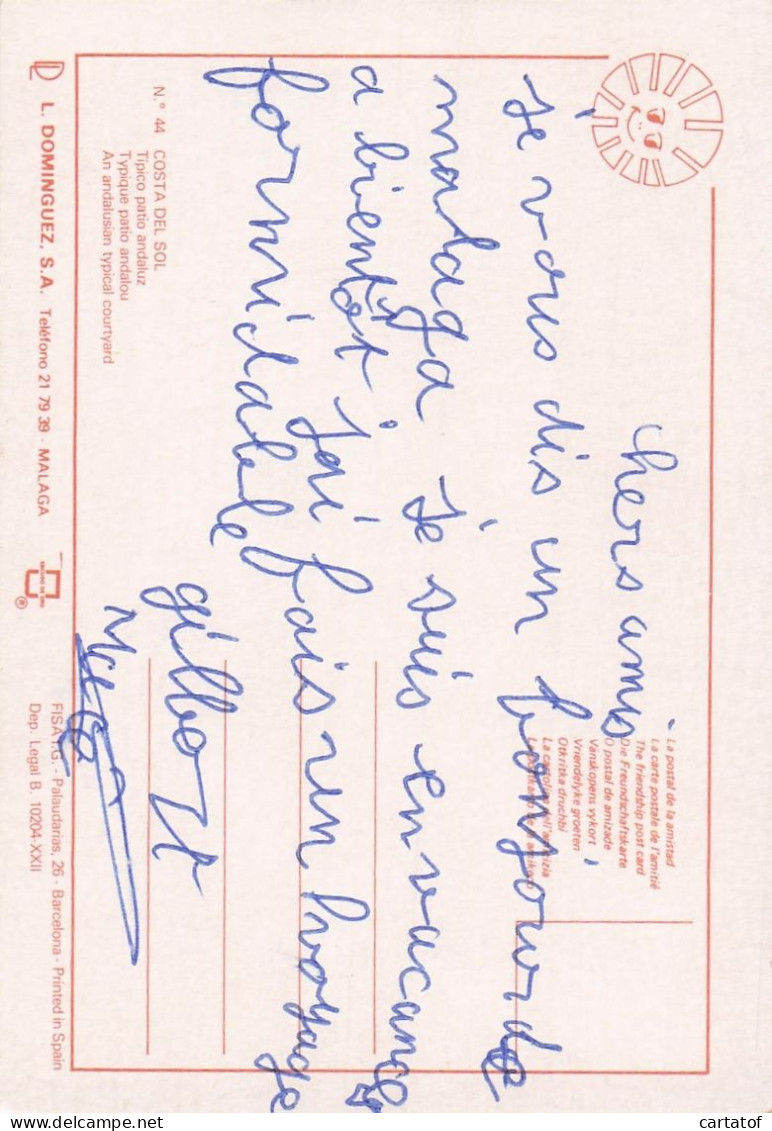 chers amis
je vous dis un bonjour de
malaga je suis en vacance
a bientôt j'ai fais un voyage
formidable
gilbert
La postal de la amistad
La carte postale de l'amitié
The friendship post card
Die Freundschaftskarte
O postal de amizade
Vanskopens vykort
Vriendelyke groeten
Otkritka druchbi
La cartolina dell'amicizia
N.º 44 COSTA DEL SOL
Típico patio andaluz
Typique patio andalou
An andalusian typical courtyard
L. DOMINGUEZ, S.A. Teléfono 21 79 39 - MALAGA
FISA I.G. - Palaudarias, 26 - Barcelona - Printed in Spain
Dep. Legal B. 10204-XXII
cartatof